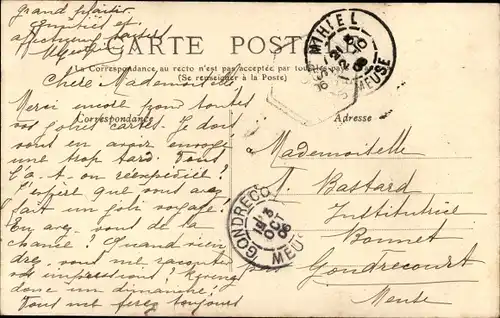 grand plaisir
Amitiés et
affectueux baisers
CARTE POSTALE
La Correspondance, au recto n'est pas acceptée par tous les pays
(Se renseigner à la Poste)
Chère Mademoiselle
Merci encore pour toutes
Correspondance
vos jolies cartes. Je dois
vous en avoir envoyé
une trop tard. Vous
l'a-t-on réexpédiée ?
J'espère que vous avez
fait un joli voyage.
En avez-vous de la
chance ! Quand vien
drez-vous me raconter
vos impressions ?
donc un dimanche !
Vous me ferez toujours
MIHIEL
MEUSE
Adresse
Mademoiselle
Bastard
Institutrice
Bonnet
Gondrecourt
Meuse
GONDRECO
OCT
06
MEUSE